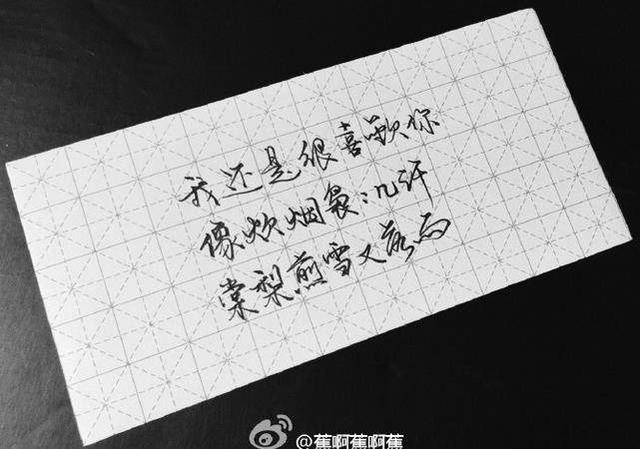 我还是很喜歡你
像炊烟袅:几许
棠梨煎雪又落雨
@蕉啊蕉啊蕉